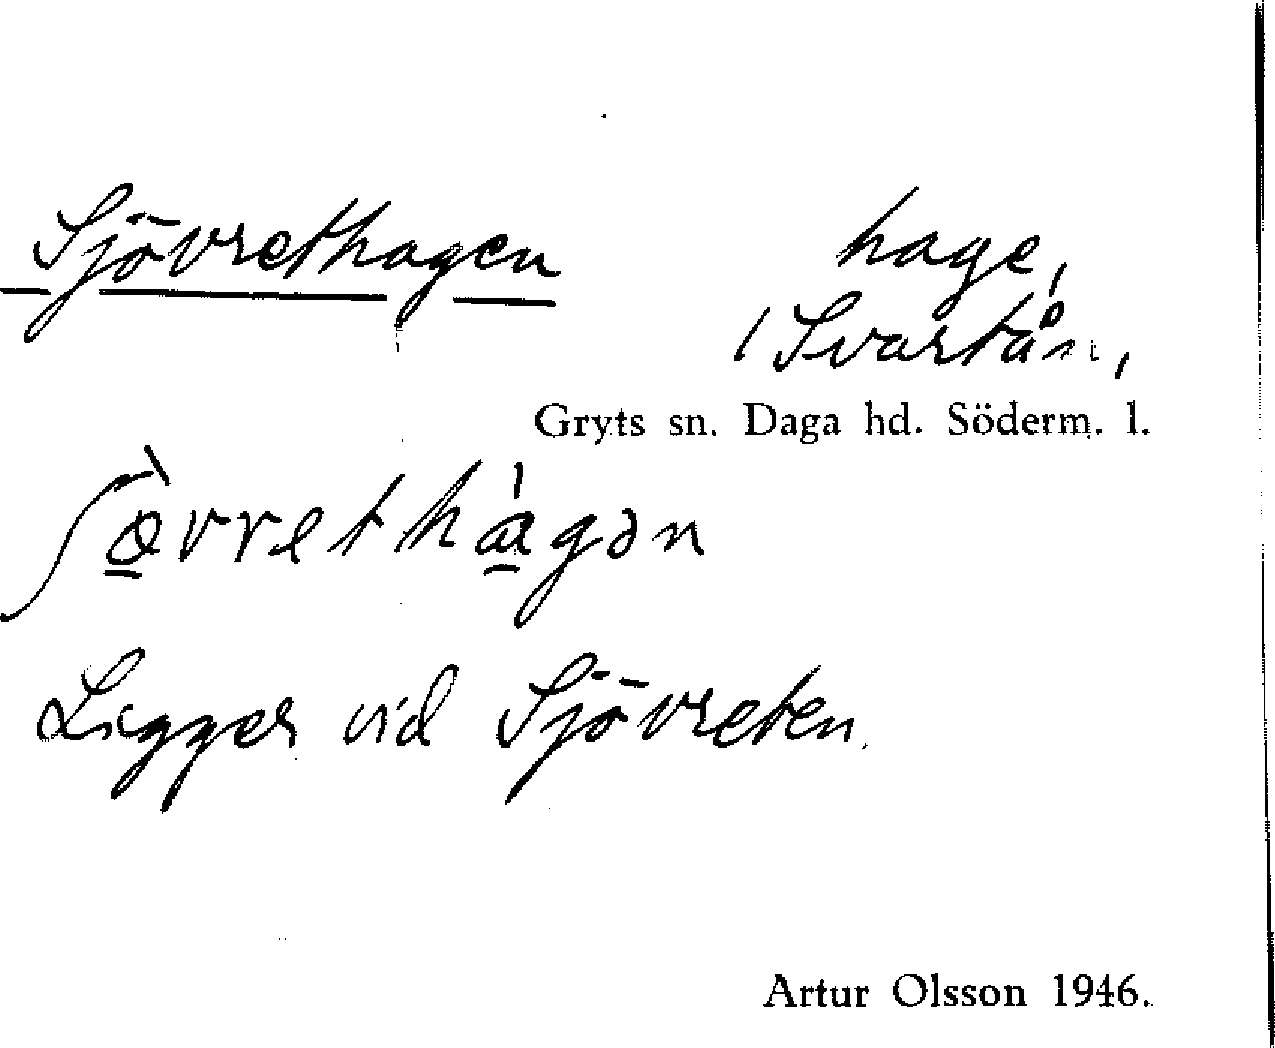 Sjövrethagen hage,
/ Svartån,
Gryts sn. Daga hd. Söderm. l.
ʃø̱̀vrethɑ̱́gən
Ligger vid Sjövreten.
Artur Olsson 1946.